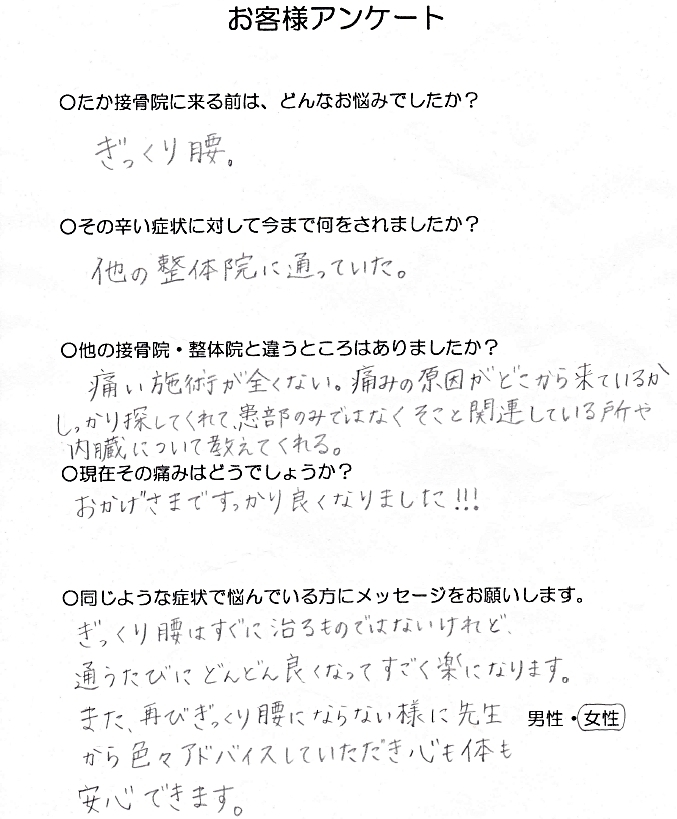 お客様アンケート
〇たか接骨院に来る前は、どんなお悩みでしたか？
ぎっくり腰。
〇その辛い症状に対して今まで何をされましたか？
他の整体院に通っていた。
〇他の接骨院・整体院と違うところはありましたか？
痛い施術が全くない。痛みの原因がどこから来ているか
しっかり探してくれて、患部のみではなくそこと関連している所や
内臓について教えてくれる。
〇現在その痛みはどうでしょうか？
おかげさまですっかり良くなりました!!!
〇同じような症状で悩んでいる方にメッセージをお願いします。
ぎっくり腰はすぐに治るものではないけれど、
通うたびにどんどん良くなってすごく楽になります。
また、再びぎっくり腰にならない様に先生
男性・女性
から色々アドバイスしていただき心も体も
安心できます。